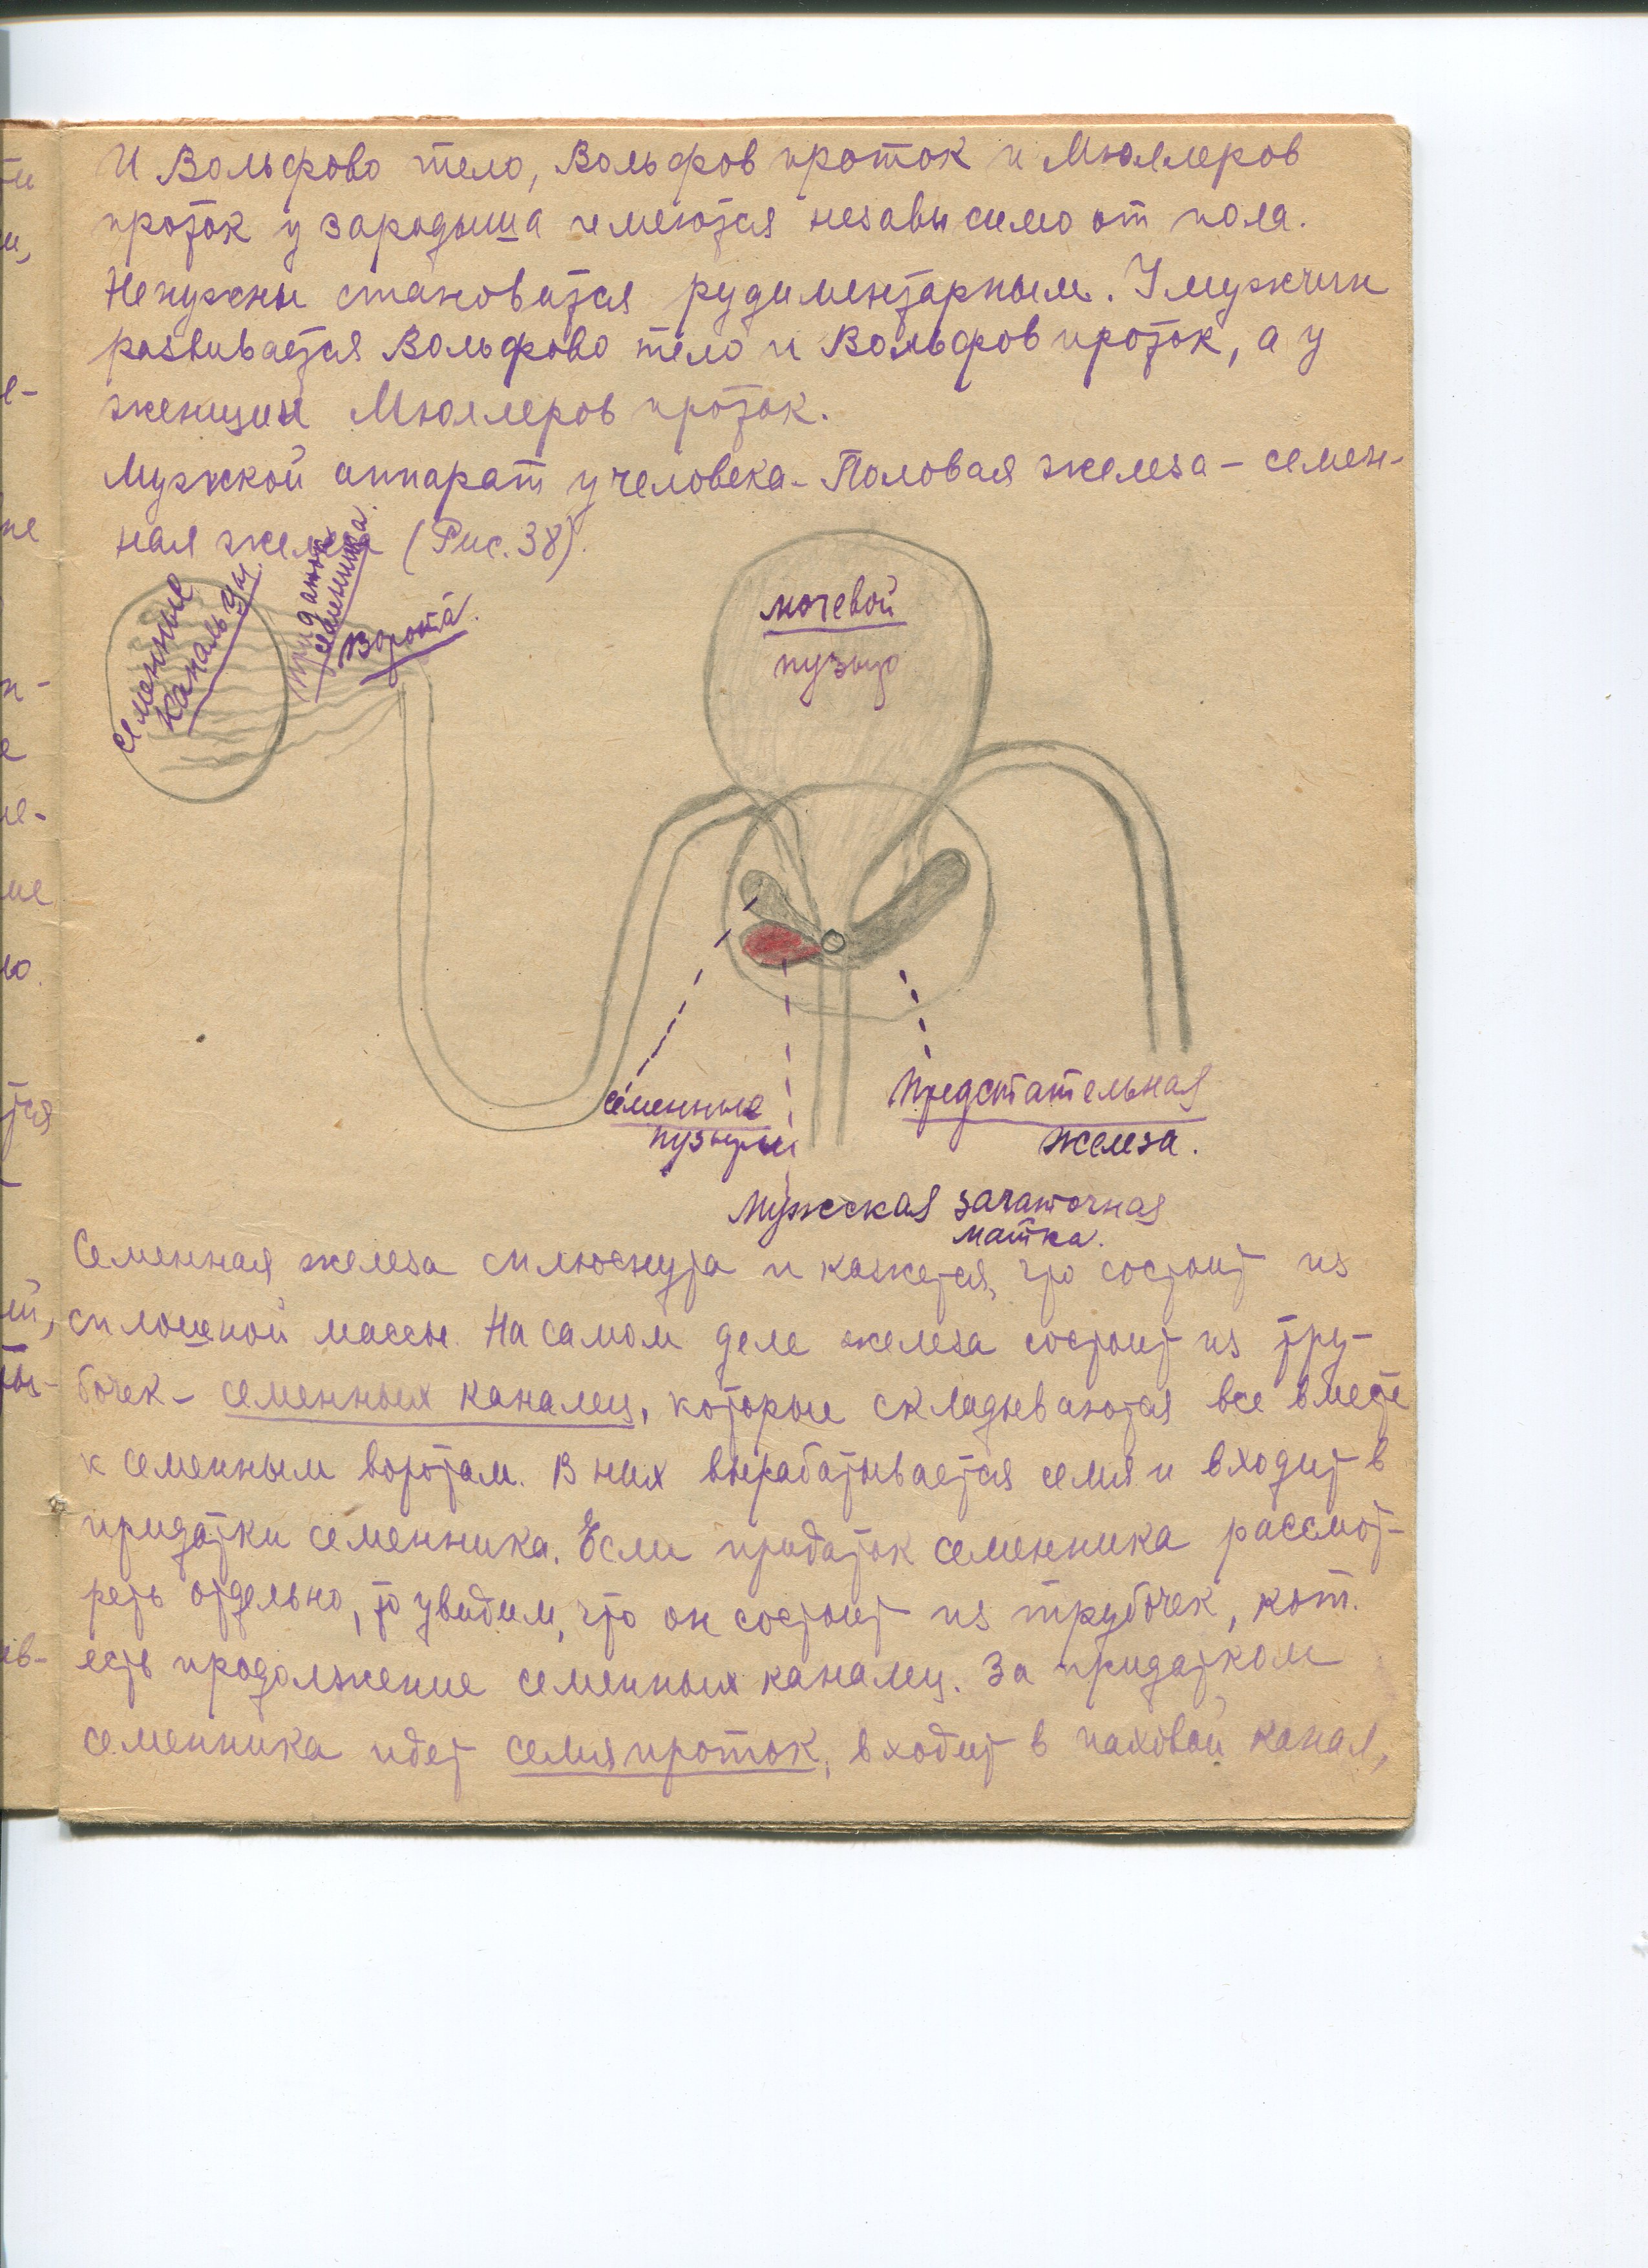 И Вольфово тело, Вольфов проток и Мюллеров
проток у зародыша имеются независимо от пола.
Ненужны становится рудиментарным. У мужчин
развивается Вольфово тело и Вольфов проток, а у
женщин Мюллеров проток.
Мужской аппарат у человека - Половая железа - семен-
ная железа (Рис. 38).
семенные
канальцы.
придаток
семенника.
Ворота.
мочевой
пузырь
семенные
пузыри
Предстательная
железа.
Мужская зачаточная
матка.
Семенная железа сплюснута и кажется, что состоит из
сплошной массы. На самом деле железа состоит из тру-
бочек - семенных каналец, которые складываются все вместе
к семенным воротам. В них вырабатывается семя и входит в
придатки семенника. Если придаток семенника рассмот-
реть отдельно, то увидим, что он состоит из трубочек, кот.
есть продолжение семенных каналец. За придатком
семенника идет семяпроток, входит в паховой канал,